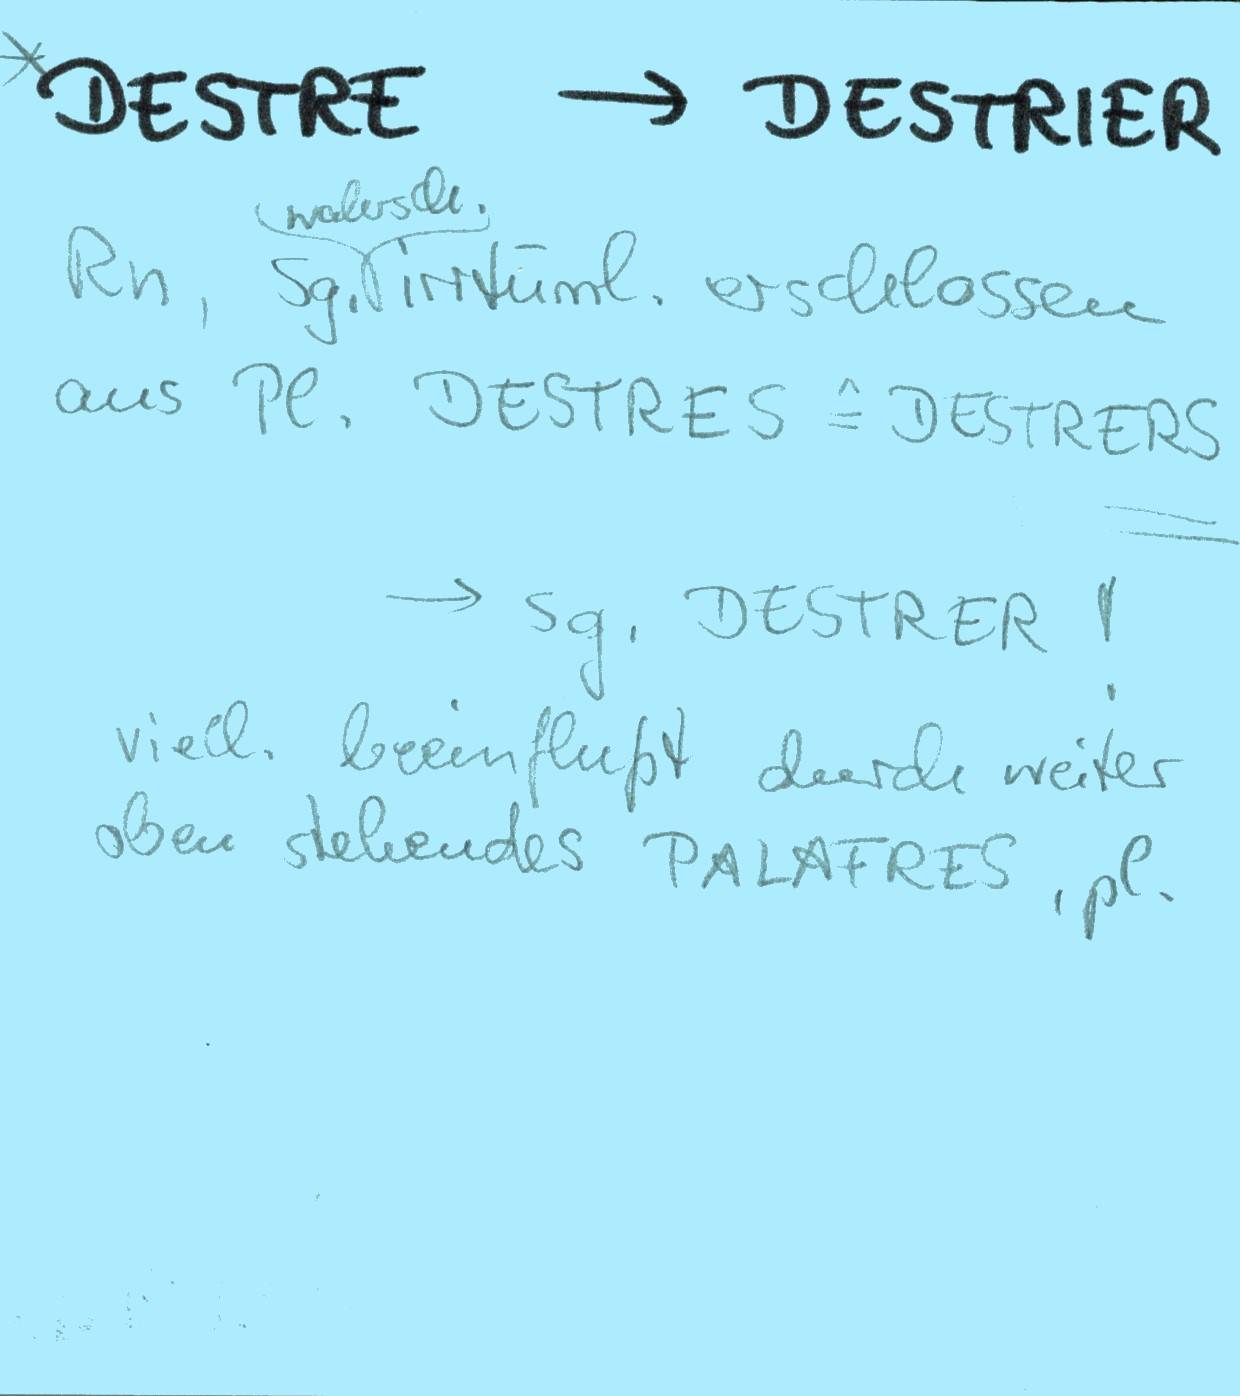 *DESTRE → DESTRIER
wahrsch.
Rn, Sg. irrtüml. erschlossen
aus Pl. DESTRES ≙ DESTRERS
→ Sg. DESTRER !
viell. beeinflußt durch weiter
oben stehendes PALAFRES, pl.